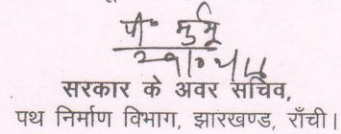 पी० मुर्मू
सरकार के अवर सचिव,
पथ निर्माण विभाग, झारखण्ड, राँची।